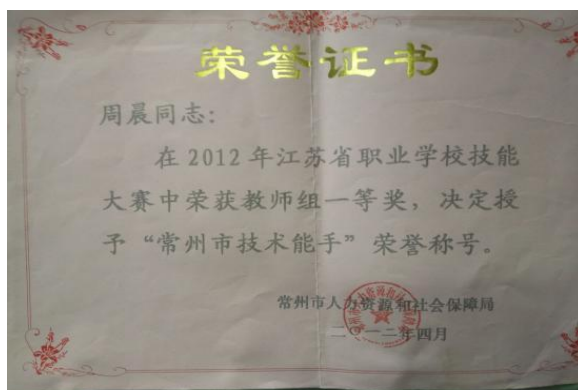 荣誉证书
周晨同志：
在2012年江苏省职业学校技能
大赛中荣获教师组一等奖，决定授
予“常州市技术能手”荣誉称号。
常州市人力资源和社会保障局
二〇一二年四月